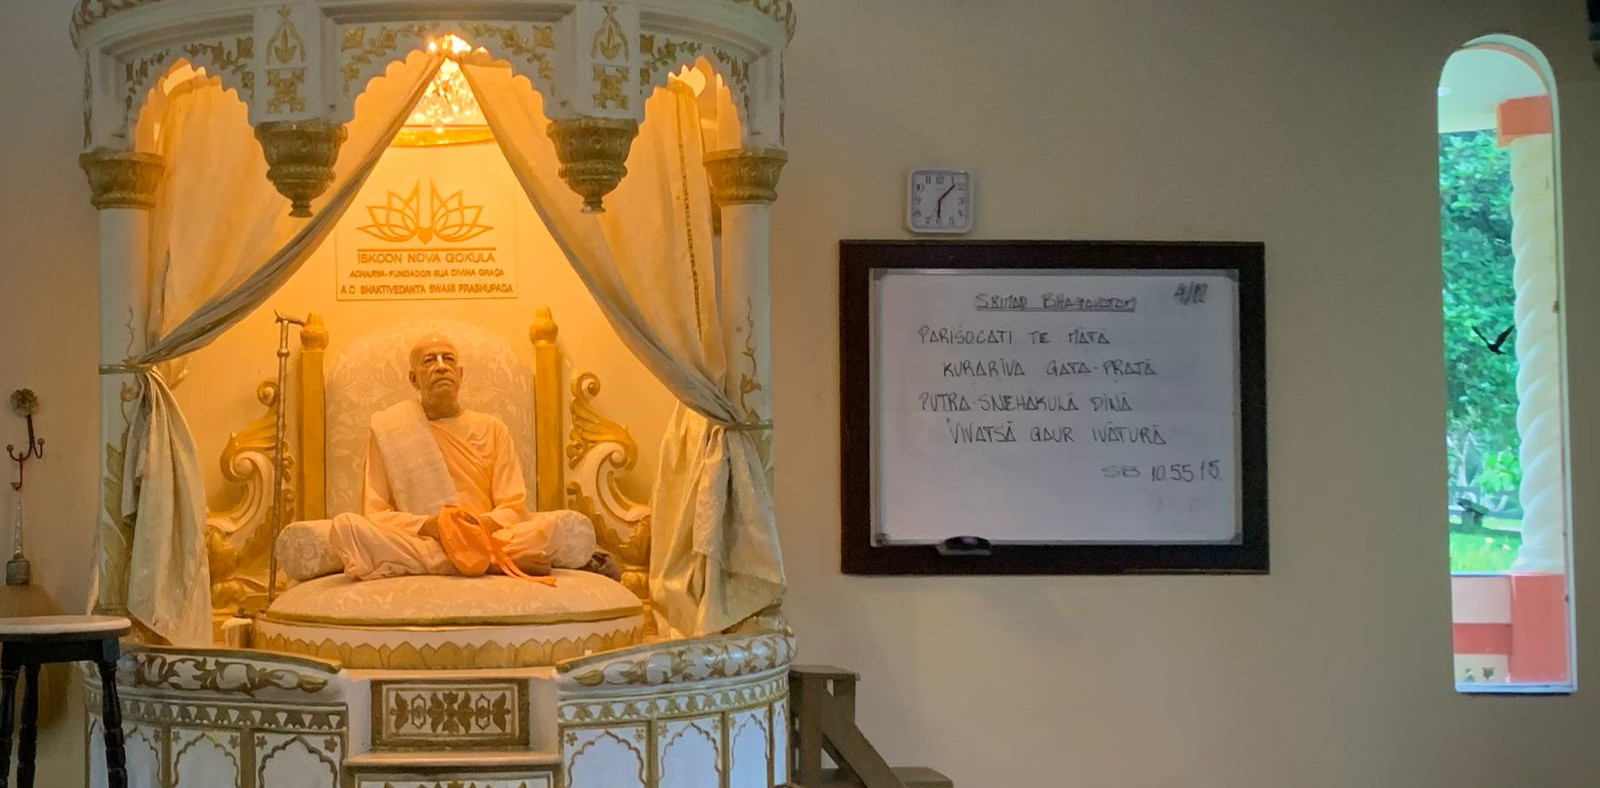 ISKCON NOVA GOKULA
ACHARYA-FUNDADOR SUA DIVINA GRAÇA
A.C. BHAKTIVEDANTA SWAMI PRABHUPADA
SRIMAD BHAGAVATAM 4/12
PARIŚOCATI TE MĀTĀ
KURARĪVA GATA-PRAJĀ
PUTRA-SNEHĀKULĀ DĪNĀ
VIVATSĀ GAUR IVĀTURĀ
SB 10.55.15.